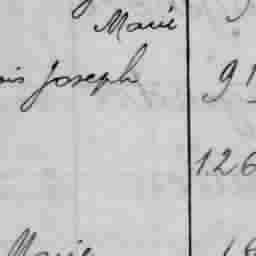 Marie
ois Joseph 91
126
Marie 18